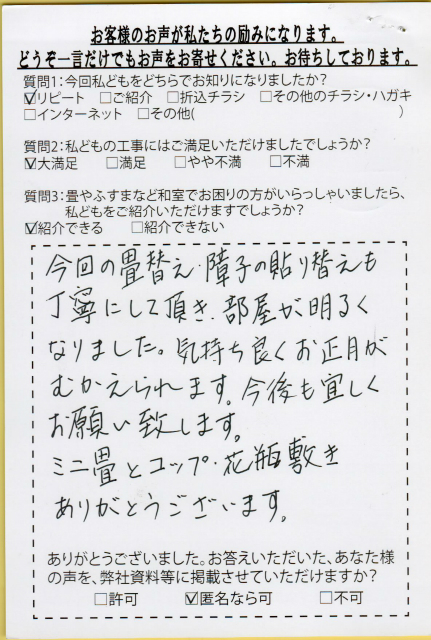 お客様のお声が私たちの励みになります。
どうぞ一言だけでもお声をお寄せください。お待ちしております。
質問1：今回私どもをどちらでお知りになりましたか？
☑リピート　□ご紹介　□折込チラシ　□その他のチラシ・ハガキ
□インターネット　□その他(　　　　　　　　　　)
質問2：私どもの工事にはご満足いただけましたでしょうか？
☑大満足　□満足　□やや不満　□不満
質問3：畳やふすまなど和室でお困りの方がいらっしゃいましたら、
私どもをご紹介いただけますでしょうか？
☑紹介できる　□紹介できない
今回の畳替え・障子の貼り替えも
丁寧にして頂き、部屋が明るく
なりました。気持ち良くお正月が
むかえられます。今後も宜しく
お願い致します。
ミニ畳とコップ・花瓶敷き
ありがとうございます。
ありがとうございました。お答えいただいた、あなた様
の声を、弊社資料等に掲載させていただけますか？
□許可　☑匿名なら可　□不可